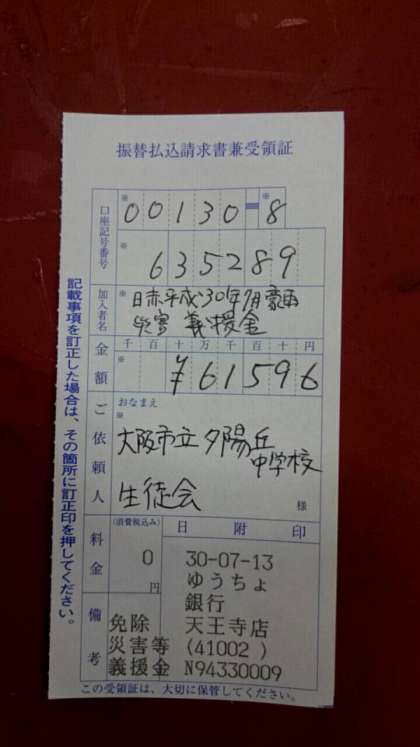 振替払込請求書兼受領証
口座記号番号
※
00130-8
※
※
635289
加入者名
※
日赤平成30年7月豪雨
災害 義援金
金額
千百十万千百十円
※
¥61596
ご依頼人
おなまえ
※
大阪市立夕陽丘
中学校
生徒会
様
料金
(消費税込み)
0
円
日附印
30-07-13
ゆうちょ
銀行
天王寺店
(41002)
N94330009
備考
免除
災害等
義援金
この受領証は、大切に保管してください。
記載事項を訂正した場合は、その箇所に訂正印を押してください。